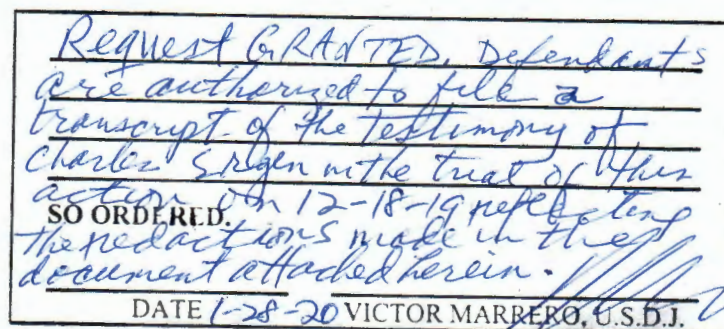 Request GRANTED. Defendants
are authorized to file a
transcript of the testimony of
Charles Ergen in the trial of this
action on 12-18-19 reflecting
SO ORDERED.
the redactions made in the
document attached herein.
DATE 1-28-20 VICTOR MARRERO, U.S.D.J.